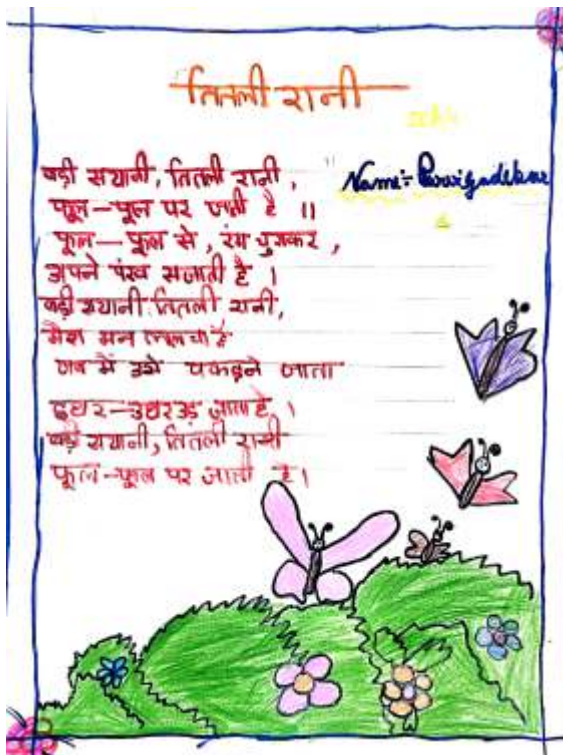 तितली रानी
बड़ी सयानी, तितली रानी,
Name:-
फूल-फूल पर जाती है ॥
फूल-फूल से, रंग चुराकर,
अपने पंख सजाती है ।
बड़ी सयानी तितली रानी,
मेरा मन ललचाहै
जब मैं उसे पकड़ने जाता
इधर-उधर उड़ जाता है ।
बड़ी सयानी, तितली रानी
फूल-फूल पर जाती है ।